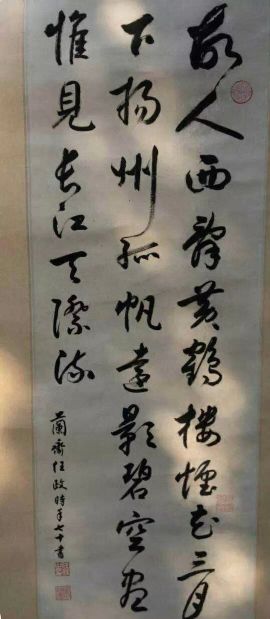 故人西辭黄鶴樓煙花三月
下揚州孤帆遠影碧空盡
惟見長江天際流
蘭齋任政時年七十書